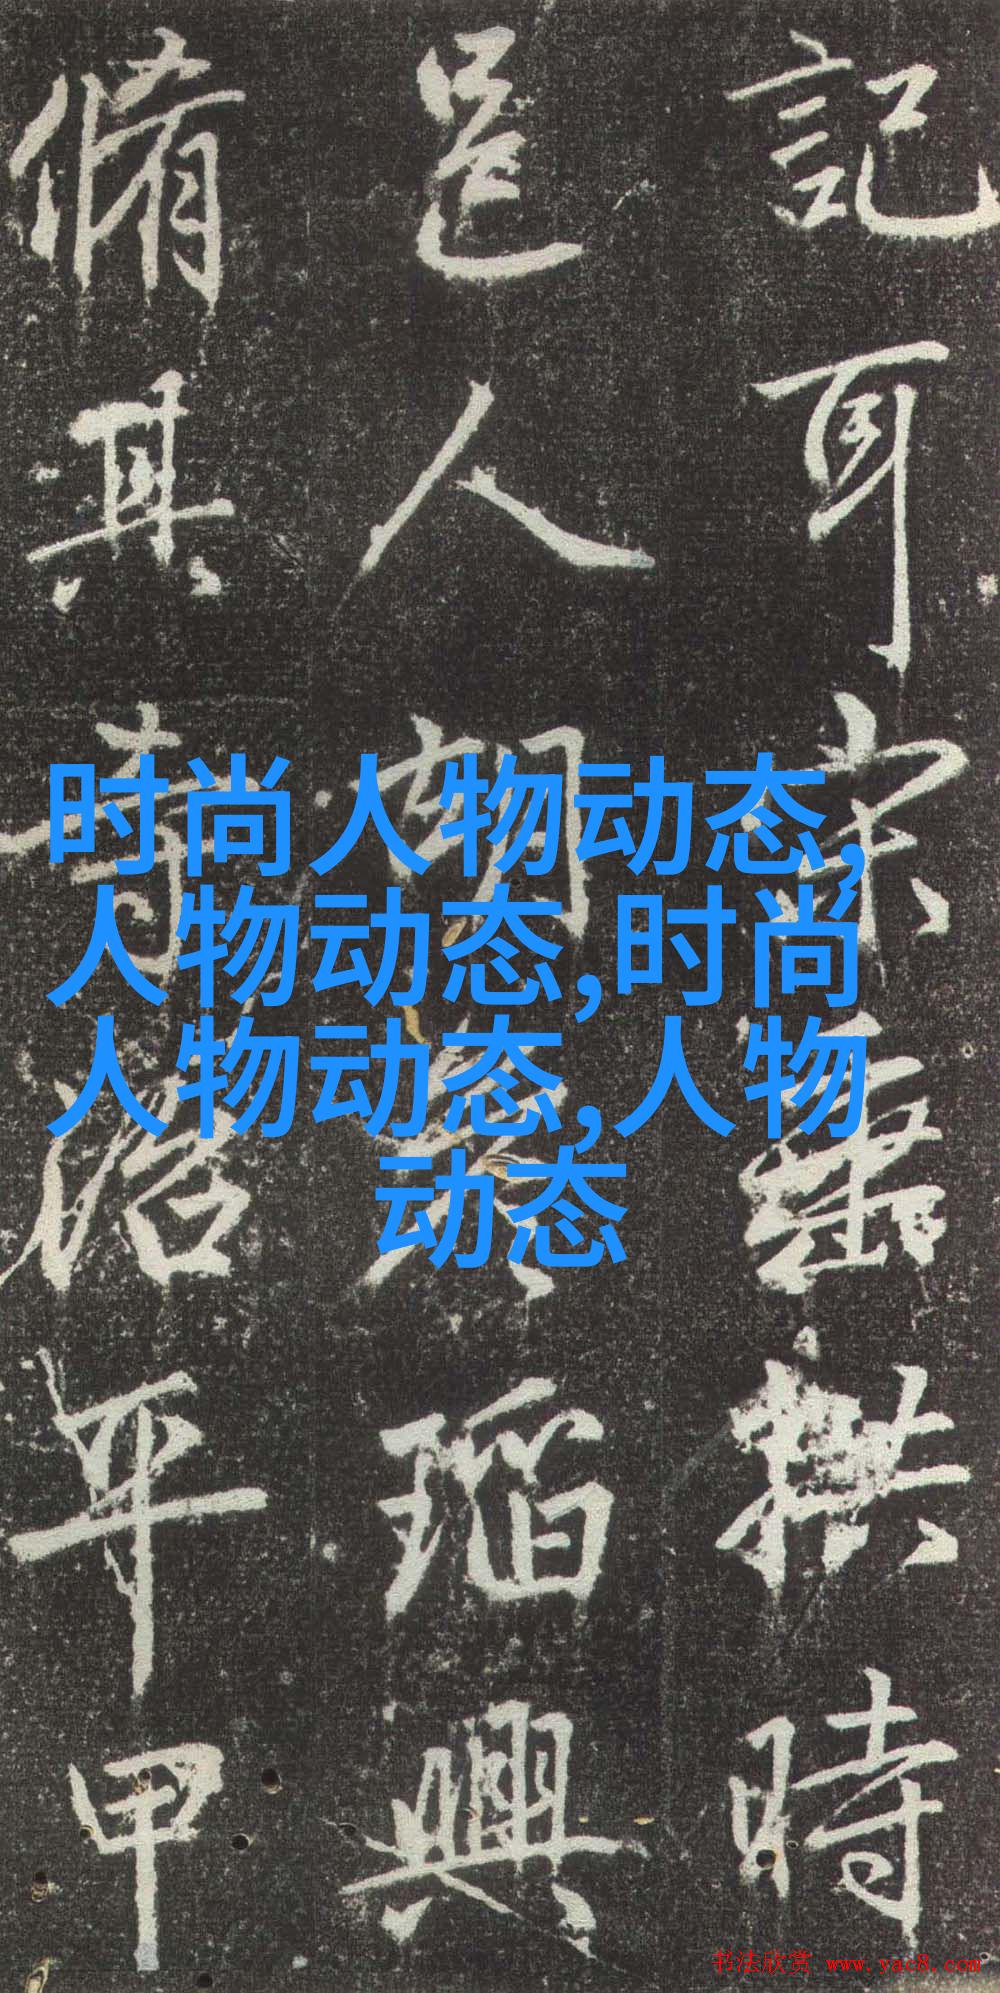 記耳宗垂拱時
邑人胡瑫興
脩其寺治平甲
时尚人物动态,
人物动态,时尚
人物动态,人物
动态
书法欣赏 www.yac8.com